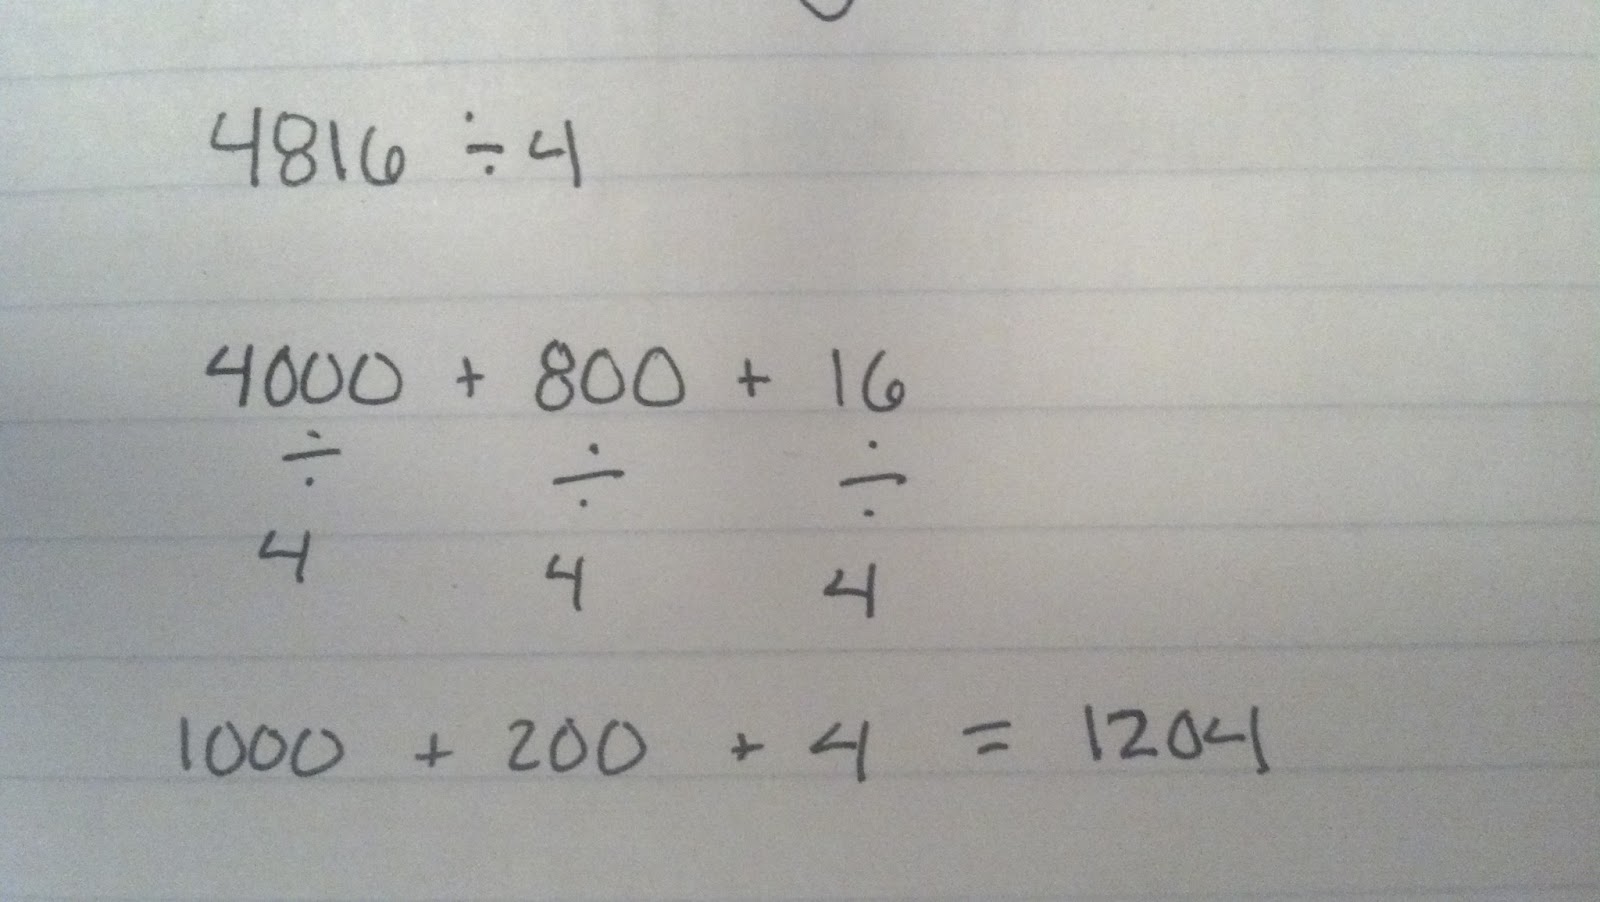 4816 ÷ 4
4000 + 800 + 16
÷ ÷ ÷
4 4 4
1000 + 200 + 4 = 1204